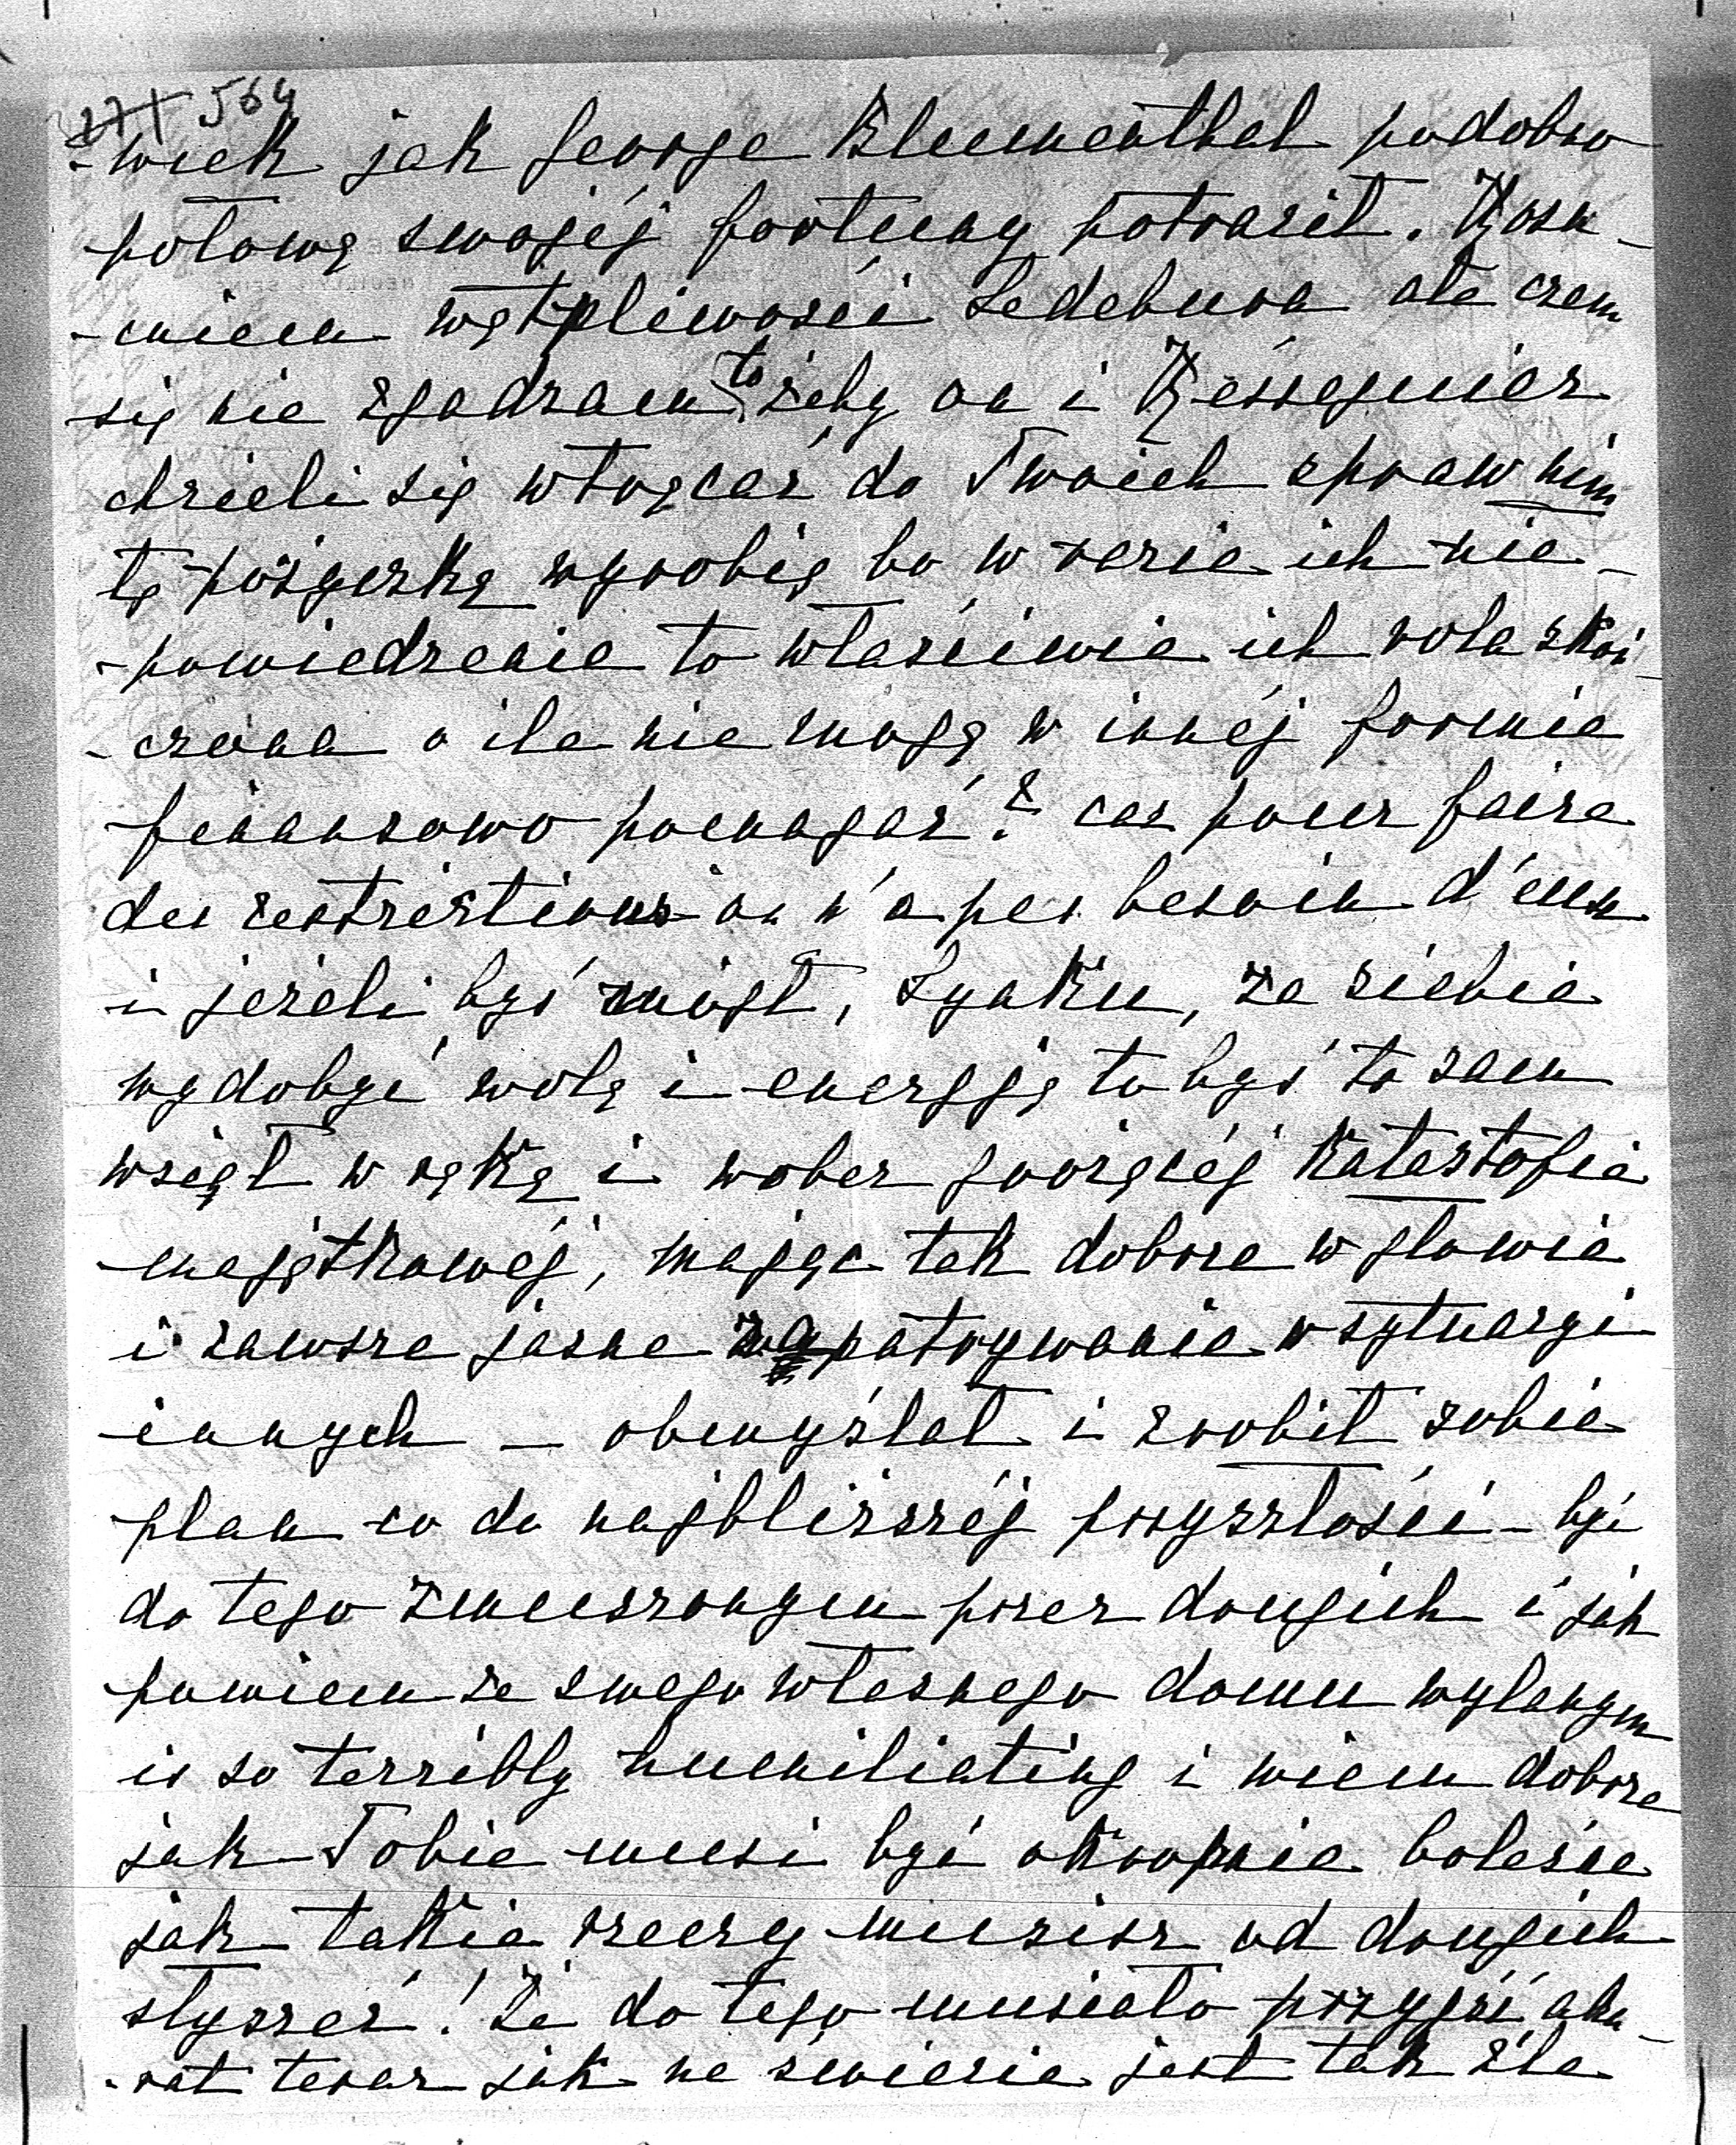 171 564
-wiek jak George Blumenthal podobno
połowę swojéj fortuny potracił. Rozu-
-miem wątpliwości Ledebura ale czem
się nie zgadzam to żeby on i Rességuier
chcieli się wtrącać do Twoich spraw nim
tę pożyczkę wyrobią bo w razie ich nie-
-powiedzenia to właściwie ich rola skoń-
-czona o ile nie mogą w innéj formie
finansowo pomagać? car pour faire
des restrictions on n'a pas besoin d'eux
i jeżeli byś mógł, Synku, ze siebie
wydobyć wolę i energję to byś to sam
wziął w rękę i wobec gorącéj katastofie
majątkowéj, mając tak dobrze w głowie
i zawsze jasne zapatrywanie w sytuacyi
innych – obmyślał i zrobił sobie
plan co do najbliższéj przyszłości – być
do tego zmuszonym przez drugich i jak
powiem ze swego własnego domu wylanym
is so terribly humiliating i wiem dobrze
jak Tobie musi być okropnie boleśne
jak takie rzeczy musisz od drugich
słyszeć! Że do tego musiało przyjść aku-
-rat teraz jak na świecie jest tak źle